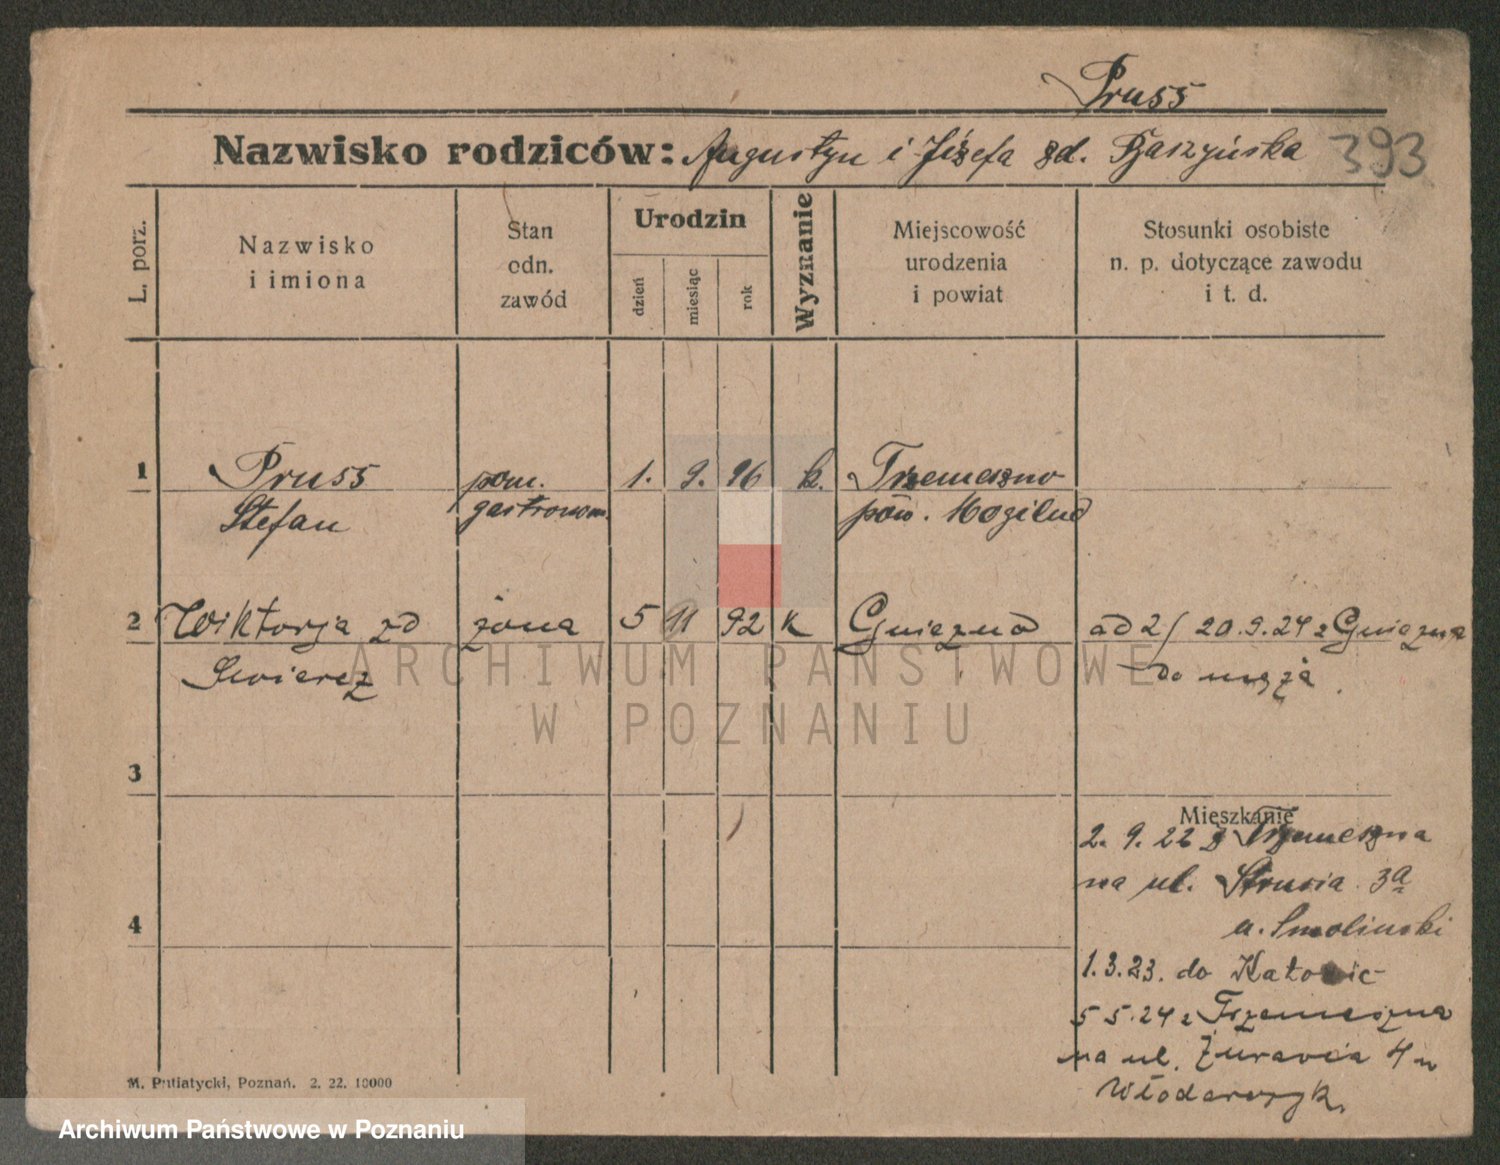 Pruss
Nazwisko rodziców: Augustyn i Józefa zd. Gaszyńska 393
L. porz.
Nazwisko
i imiona
Stan
odn.
zawód
Urodzin
dzień
miesiąc
rok
Wyznanie
Miejscowość
urodzenia
i powiat
Stosunki osobiste
n. p. dotyczące zawodu
i t. d.
1 Pruss pom. 1. 9. 96 k. Trzemeszno
Stefan gastronom. pow. Mogilno
2 Wiktorja zd żona 5 11 92 K Gniezno ad 2/ 20.9.24 z Gniezna
Swiercz do męża.
ARCHIWUM PAŃSTWOWE
W POZNANIU
3
Mieszkanie
2. 9. 22 z Trzemeszna
na ul. Strusia 3a
u. Smolinski
4
1.3.23. do Katowic
5 5.24 z Trzemeszna
na ul. Żurawia 4 u
Włodarczyk.
M. Putiatycki, Poznań. 2. 22. 10000
Archiwum Państwowe w Poznaniu